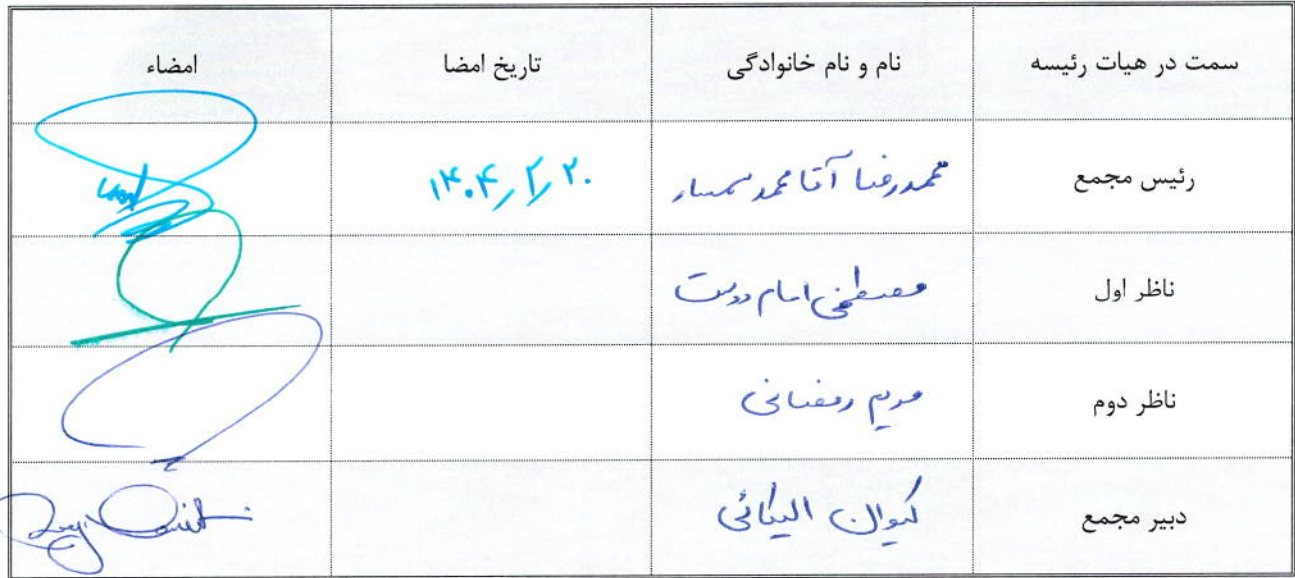 سمت در هیات رئیسه نام و نام خانوادگی تاریخ امضا امضاء
رئیس مجمع محمدرضا آقا محمد سمسار ۱۴۰۴/۲/۲۰
ناظر اول مصطفی امام دوست
ناظر دوم مریم رمضانی
دبیر مجمع کیوان الیکائی